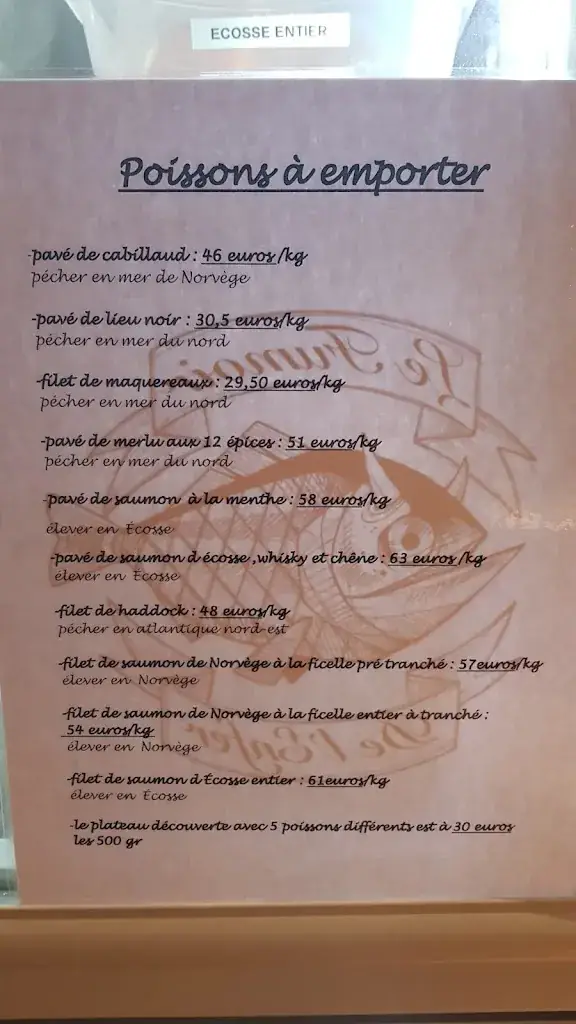 ECOSSE ENTIER
Poissons à emporter
-pavé de cabillaud : 46 euros /kg
pécher en mer de Norvège
-pavé de lieu noir : 30,5 euros/kg
pécher en mer du nord
-filet de maquereaux : 29,50 euros/kg
pécher en mer du nord
-pavé de merlu aux 12 épices : 51 euros/kg
pécher en mer du nord
-pavé de saumon à la menthe : 58 euros/kg
élever en Écosse
-pavé de saumon d écosse ,whisky et chêne : 63 euros /kg
élever en Écosse
-filet de haddock : 48 euros/kg
pécher en atlantique nord-est
-filet de saumon de Norvège à la ficelle pré tranché : 57euros/kg
élever en Norvège
-filet de saumon de Norvège à la ficelle entier à tranché :
54 euros/kg
élever en Norvège
-filet de saumon d Écosse entier : 61euros/kg
élever en Écosse
-le plateau découverte avec 5 poissons différents est à 30 euros
les 500 gr
Le Fumoir
De l'Enfer